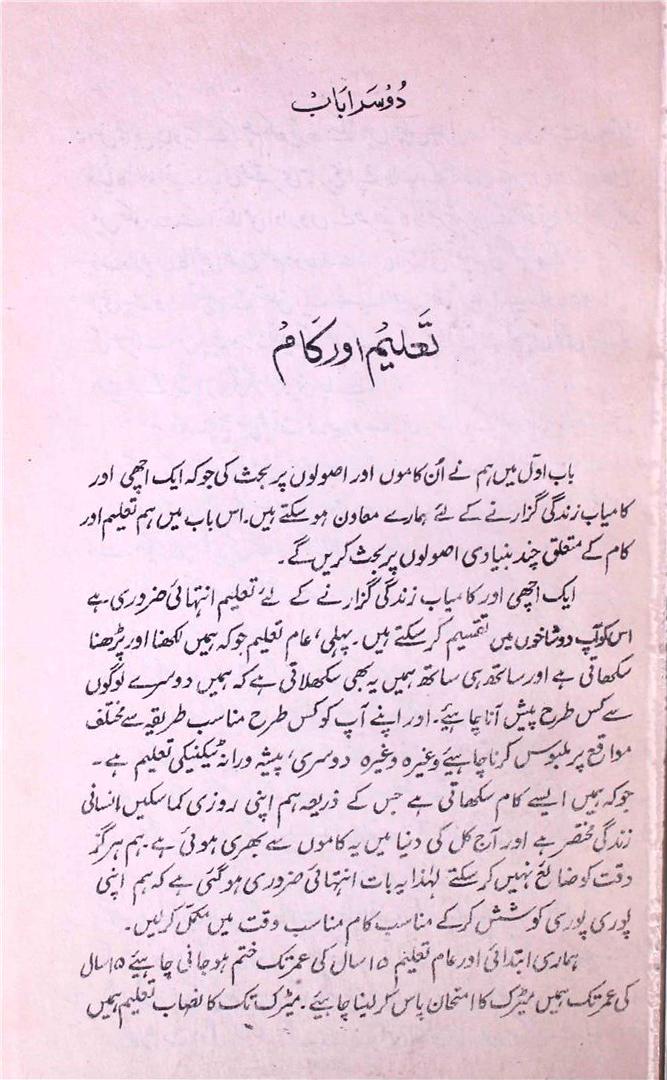 دُوسرا باب
تعلیم اور کام
باب اوّل میں ہم نے اُن کاموں اور اصولوں پر بحث کی جو کہ ایک اچھی اور
کامیاب زندگی گزارنے کے لئے ہمارے معاون ہو سکتے ہیں۔ اس باب میں ہم تعلیم اور
کام کے متعلق چند بنیادی اصولوں پر بحث کریں گے۔
ایک اچھی اور کامیاب زندگی گزارنے کے لئے، تعلیم انتہائی ضروری ہے
اس کو آپ دو شاخوں میں تقسیم کر سکتے ہیں۔ پہلی، عام تعلیم جو کہ ہمیں لکھنا اور پڑھنا
سکھاتی ہے اور ساتھ ہی ساتھ ہمیں یہ بھی سکھلاتی ہے کہ ہمیں دوسرے لوگوں
سے کس طرح پیش آنا چاہیئے۔ اور اپنے آپ کو کس طرح مناسب طریقہ سے مختلف
مواقع پر ملبوس کرنا چاہیئے وغیرہ وغیرہ دوسری، پیشہ ورانہ ٹیکنیکی تعلیم ہے۔
جو کہ ہمیں ایسے کام سکھاتی ہے جس کے ذریعہ ہم اپنی روزی کما سکیں انسانی
زندگی مختصر ہے اور آج کل کی دنیا میں یہ کاموں سے بھری ہوئی ہے۔ ہم ہرگز
وقت کو ضائع نہیں کر سکتے لہٰذا یہ بات انتہائی ضروری ہو گئی ہے کہ ہم اپنی
پوری پوری کوشش کر کے مناسب کام مناسب وقت میں مکمل کر لیں۔
ہماری ابتدائی اور عام تعلیم ۱۵ سال کی عمر تک ختم ہو جانی چاہیئے ۱۵ سال
کی عمر تک ہمیں میٹرک کا امتحان پاس کر لینا چاہیئے۔ میٹرک تک کا نصاب تعلیم ہمیں